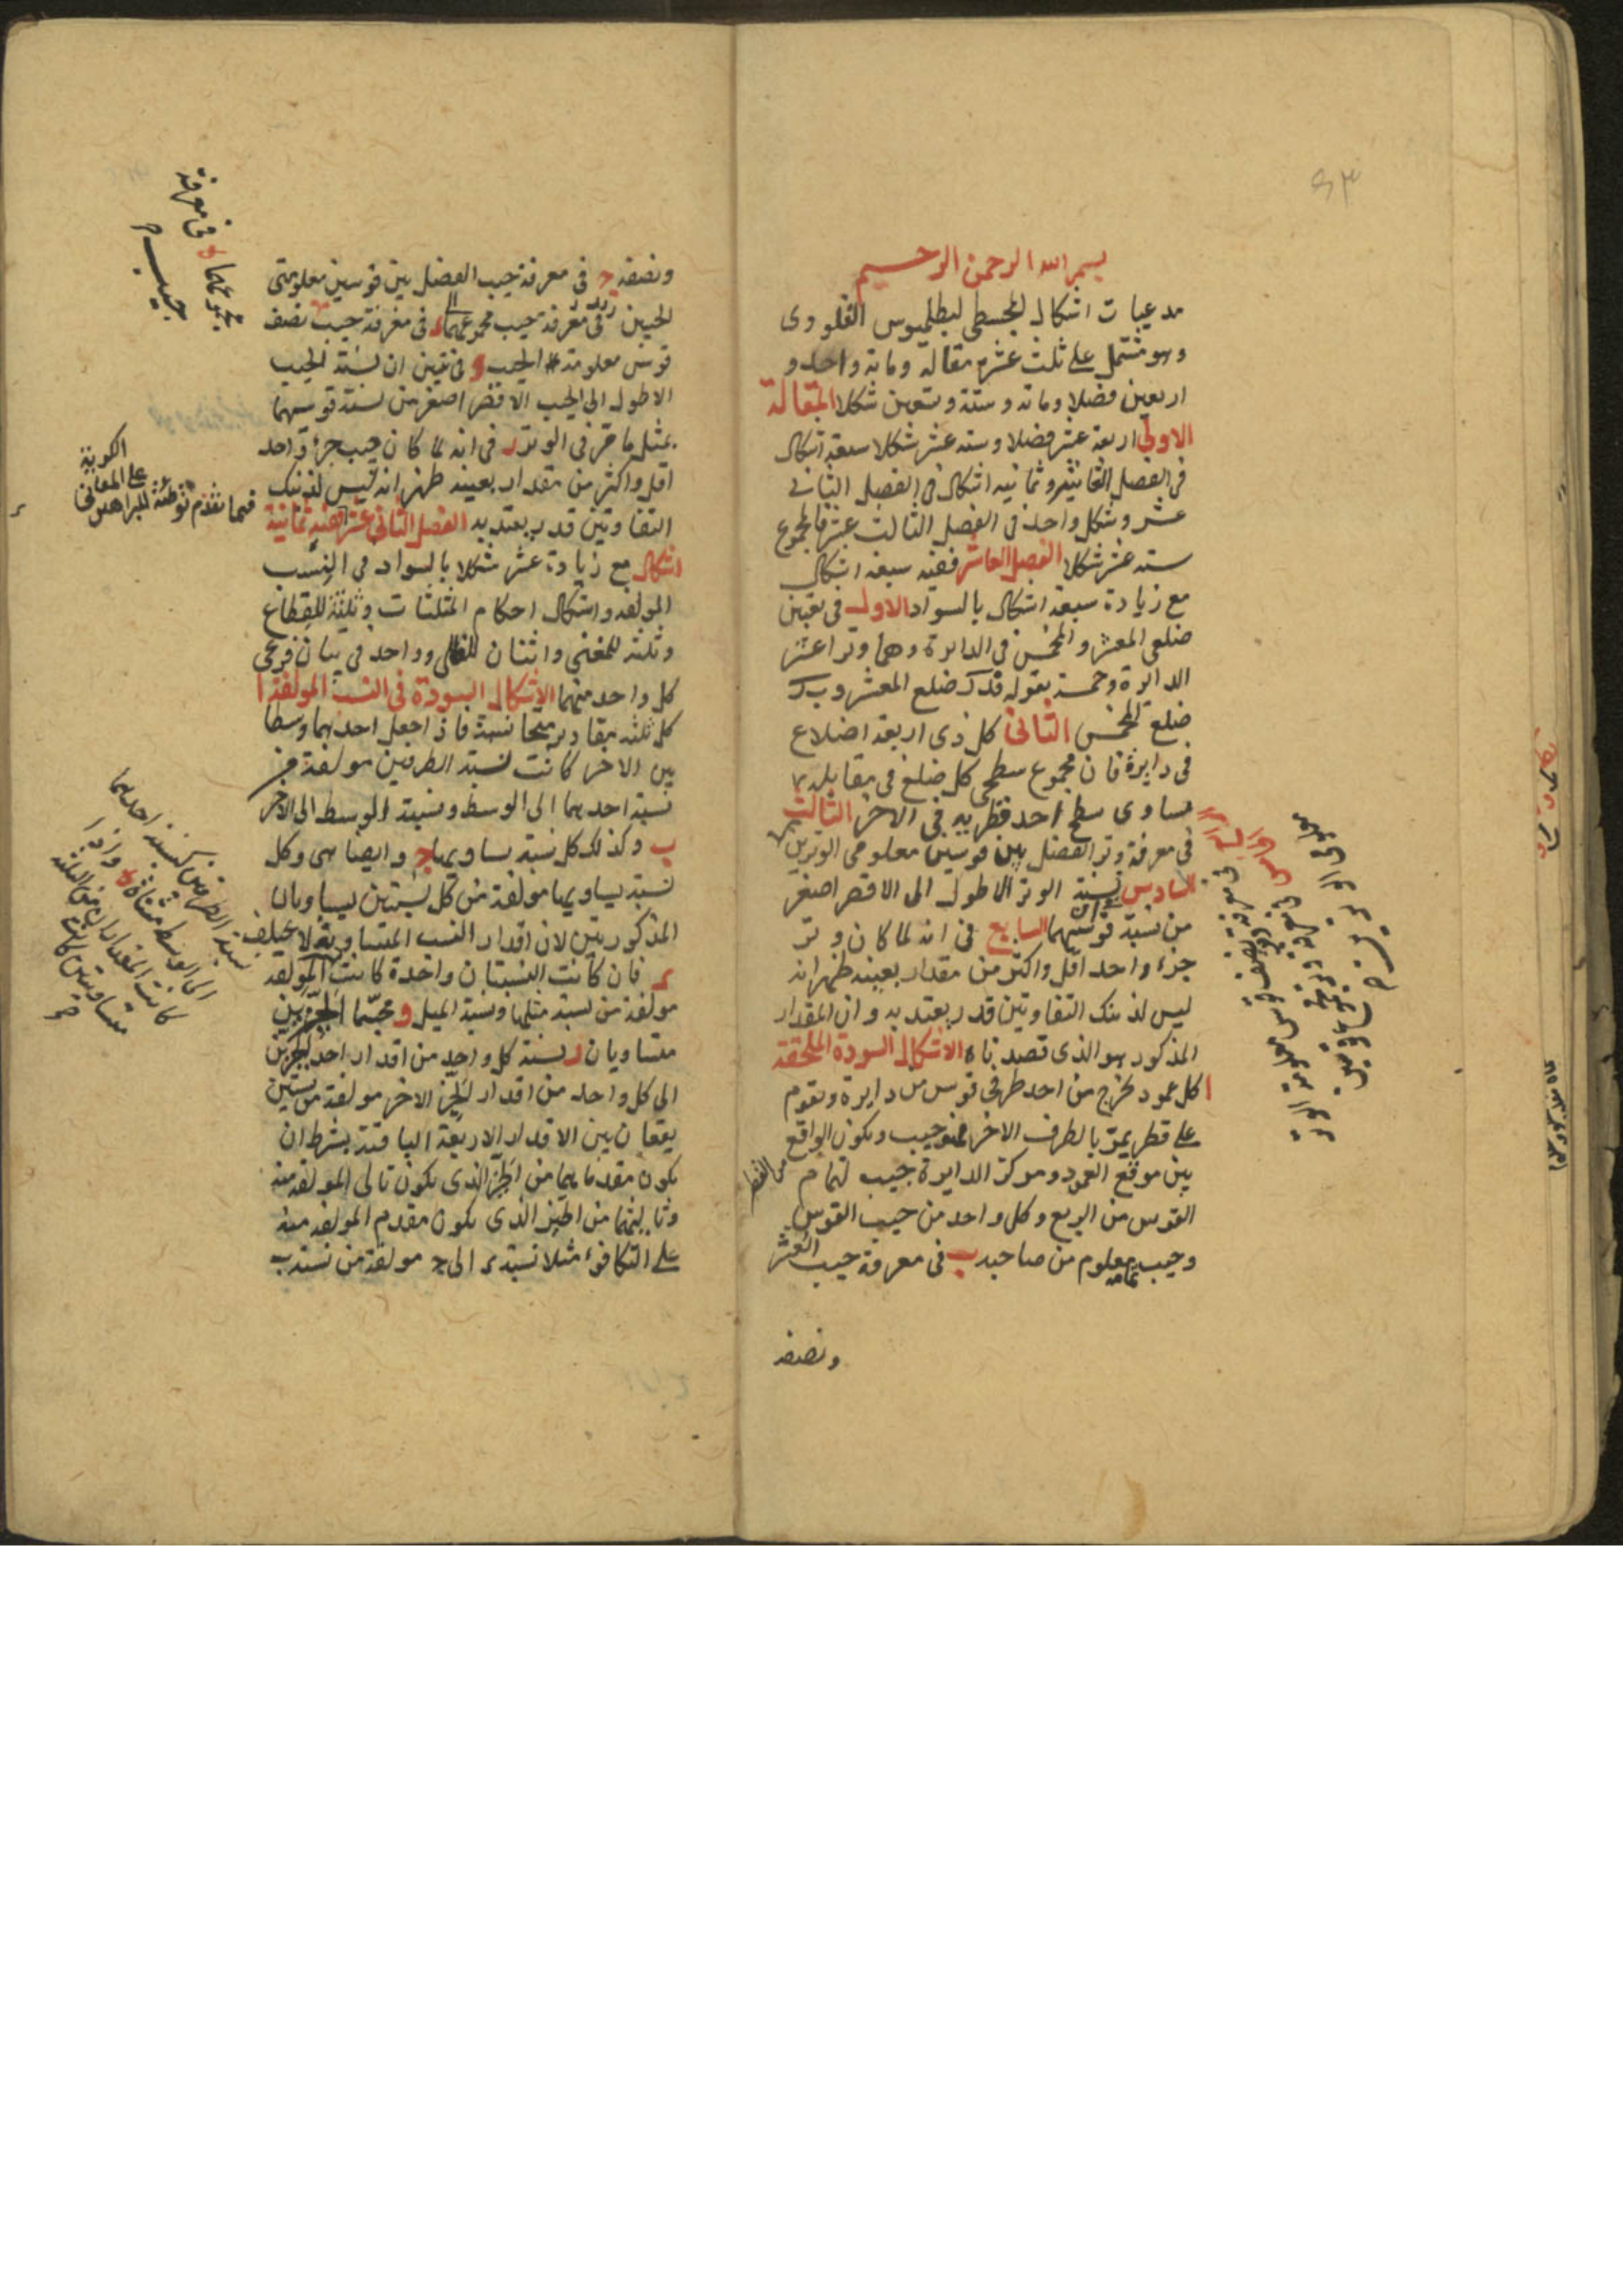 ٤٣
بسم الله الرحمن الرحيم
مدعيات اشكال المجسطى لبطلميوس القلوودى
وهو مشتمل على ثلث عشرة مقالة ومائة واحد و
اربعين فصلا ومائة وستة وتسعين شكلا المقالة
الاولى اربعة عشر فصلا وستة عشر شكلا سبعة اشكال
فى الفصل العاشر وثمانية اشكال فى الفصل الثانى
عشر وشكل واحد فى الفصل الثالث عشر فالمجموع
ستة عشر شكلا الفصل العاشر ففيه سبعة اشكال
مع زيادة سبعة اشكال بالسواد الاول فى تعيين
ضلعى المعشر والمخمس فى الدايرة وهما وترا عشر
الدايرة وخمسه بقوله فدك ضلع المعشر و بك
ضلع المخمس الثانى كل ذى اربعة اضلاع
فى دايرة فان مجموع سطحى كل ضلع فى مقابله
مساوى سطح احد قطريه فى الاخر الثالث
فى معرفة وتر الفضل بين قوسين معلومى الوترين
السادس نسبة الوتر الاطول الى الاقصر اصغر
من نسبة قوسيهما السابع فى انه لما كان وتر
جزء واحد اقل واكثر من مقدار بعينه ظهر انه
ليس لذينك التفاوتين قدر يعتد به وان المقدار
المذكور هو الذى قصدناه الاشكال السودة الملحقة
ا كل عمود يخرج من احد طرفى قوس من دايرة ويقوم
على قطر يمر بالطرف الاخر فهو جيب ويكون الواقع
من القطر
بين موقع العمود ومركز الدايرة جيب لتمام
القوس من الربع وكل واحد من جيب القوس
وجيب تمامه معلوم من صاحبه ب فى معرفة جيب العشر
ونصفه
ونصفه ج فى معرفة جيب الفضل بين قوسين معلومتى
الجيبين د فى معرفة جيب مجموعهما فى معرفة جيب نصف
قوس معلومة الجيب و فى تبيين ان نسبة الجيب
الاطول الى الجيب الاقصر اصغر من نسبة قوسيهما
بمثل ما مر فى الوتر ز فى انه لما كان جيب جزء واحد
اقل واكثر من مقدار بعينه ظهر انه ليس لذينك
التفاوتين قدر يعتد به الفصل الثانى عشر ففيه ثمانية
اشكال مع زيادة عشر شكلا بالسواد فى النسب
المولفة واشكال احكام المثلثات وثلثة للقطاع
وثلثة للمغنى واثنان للظلى وواحد فى بيان فرعى
كل واحد منهما الاشكال السودة فى النسب المولفة ا
كل ثلثة مقادير متجانسة فاذا جعل احدهما وسطا
بين الاخر كانت نسبة الطرفين مولفة من
نسبة احدهما الى الوسط ونسبة الوسط الى الاخر
ب وكذلك كل نسبة يساويها ج وايضا هى وكل
نسبة يساويها مولفة من كل نسبتين يساويان
المذكورتين لان اقدار النسب المتساوية لا يختلف
د فان كانت النسبتان واحدة كانت المولفة
مولفة من نسبة مثلها ونسبة المثل و مجسما الحيزين
متساويان ز نسبة كل واحد من اقدار احد الحيزين
الى كل واحد من اقدار الحيز الاخر مولفة من نسبتين
يقعان بين الاقدار الاربعة الباقية بشرط ان
يكون مقدماهما من الحيز الذى يكون تالى المولفة منه
وتاليتهما من الحيز الذى يكون مقدم المولفة منه
على التكافوء مثلا نسبة د الى ج مولفة من نسبة ب
فى معرفة
مجموعهما
جيب
فيما تقدم توطئة للبراهين
على المعانى
الكرية
نسبة الطرفين كنسبة احدهما
الى الوسط مثناة واذا
كانت المقادير الثلثة
متساويتين كانتا